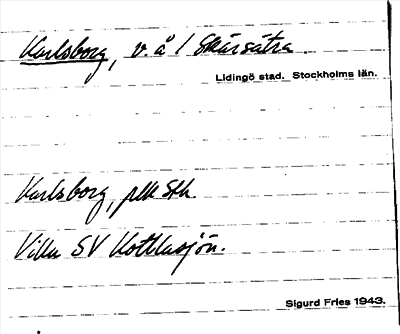 Karlsborg, v. å 1 Skärsätra.
Lidingö stad. Stockholms län.
Karlsborg, plk Sth
Villa SV Kottlasjön.
Sigurd Fries 1943.